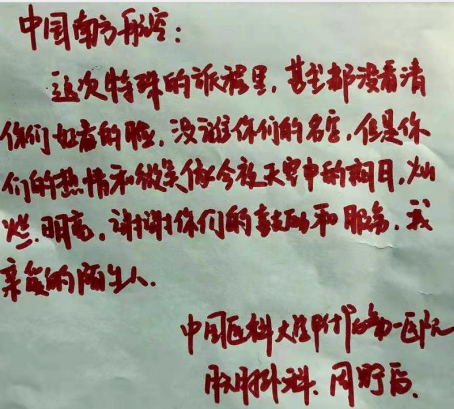 中国南方航空：
这次特殊的旅程里，甚至都没看清
你们姣好的脸，没记住你们的名字，但是你
们的热情和微笑像今夜天空中的明月，灿
烂，明亮，谢谢你们的鼓励和服务，我
亲爱的陌生人．
中国医科大学附属第一医院
胰胆外科．周贮